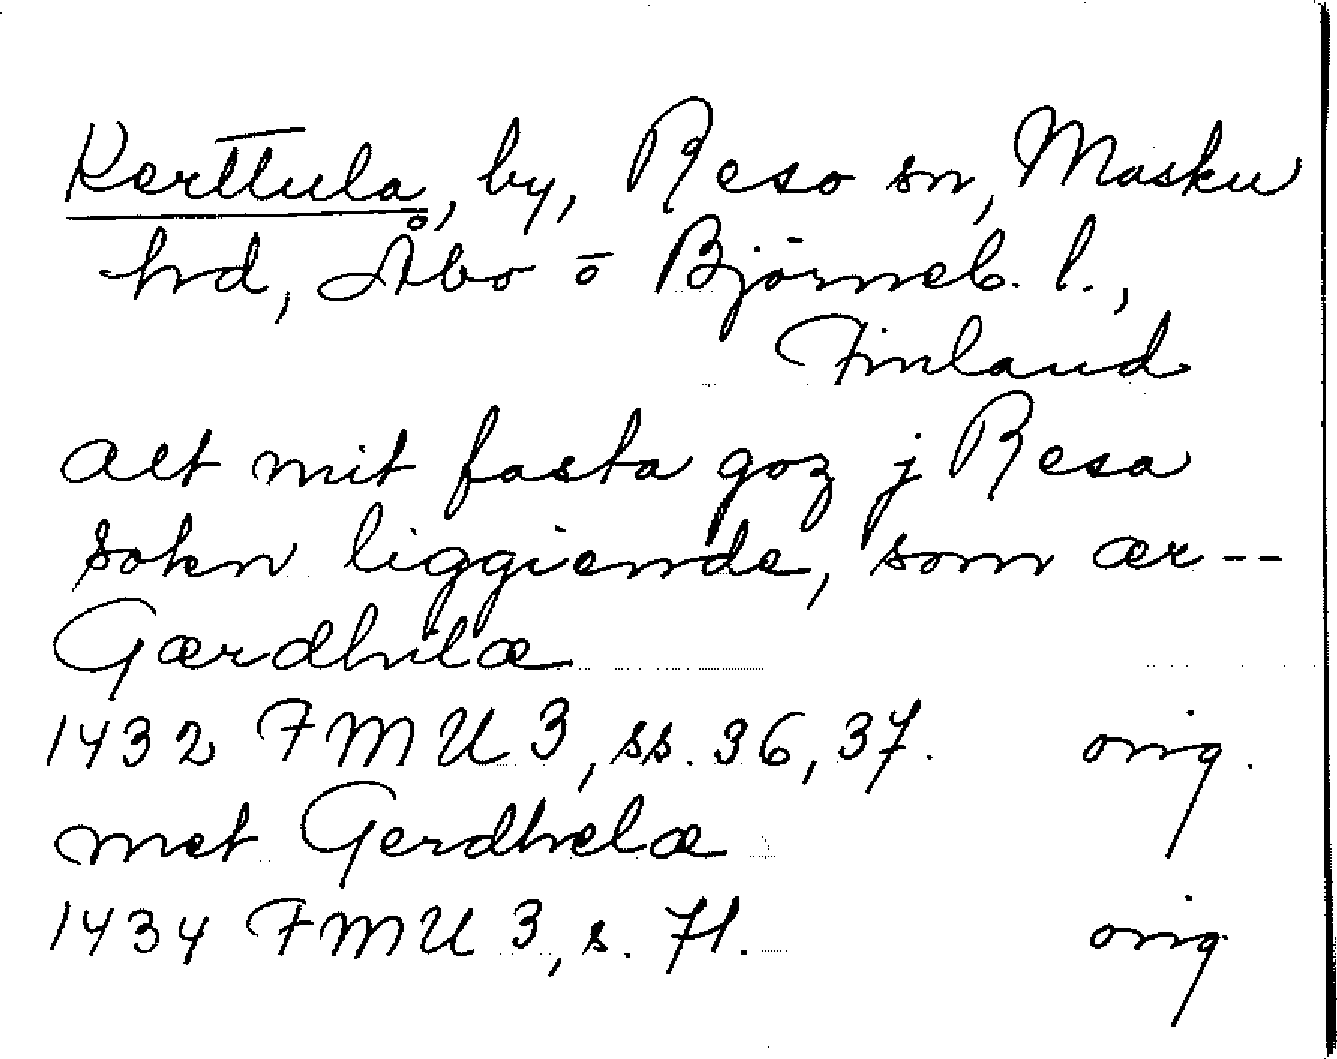 Kerttula, by, Reso sn, Masku
hd, Åbo o Björneb. l.,
Finland
alt mit fasta goz j Resa
sokn liggiende, som ær--
Gærdhulæ
1432 FMU 3, ss. 36, 37. orig.
met Gerdhelæ
1434 FMU 3, s. 71. orig